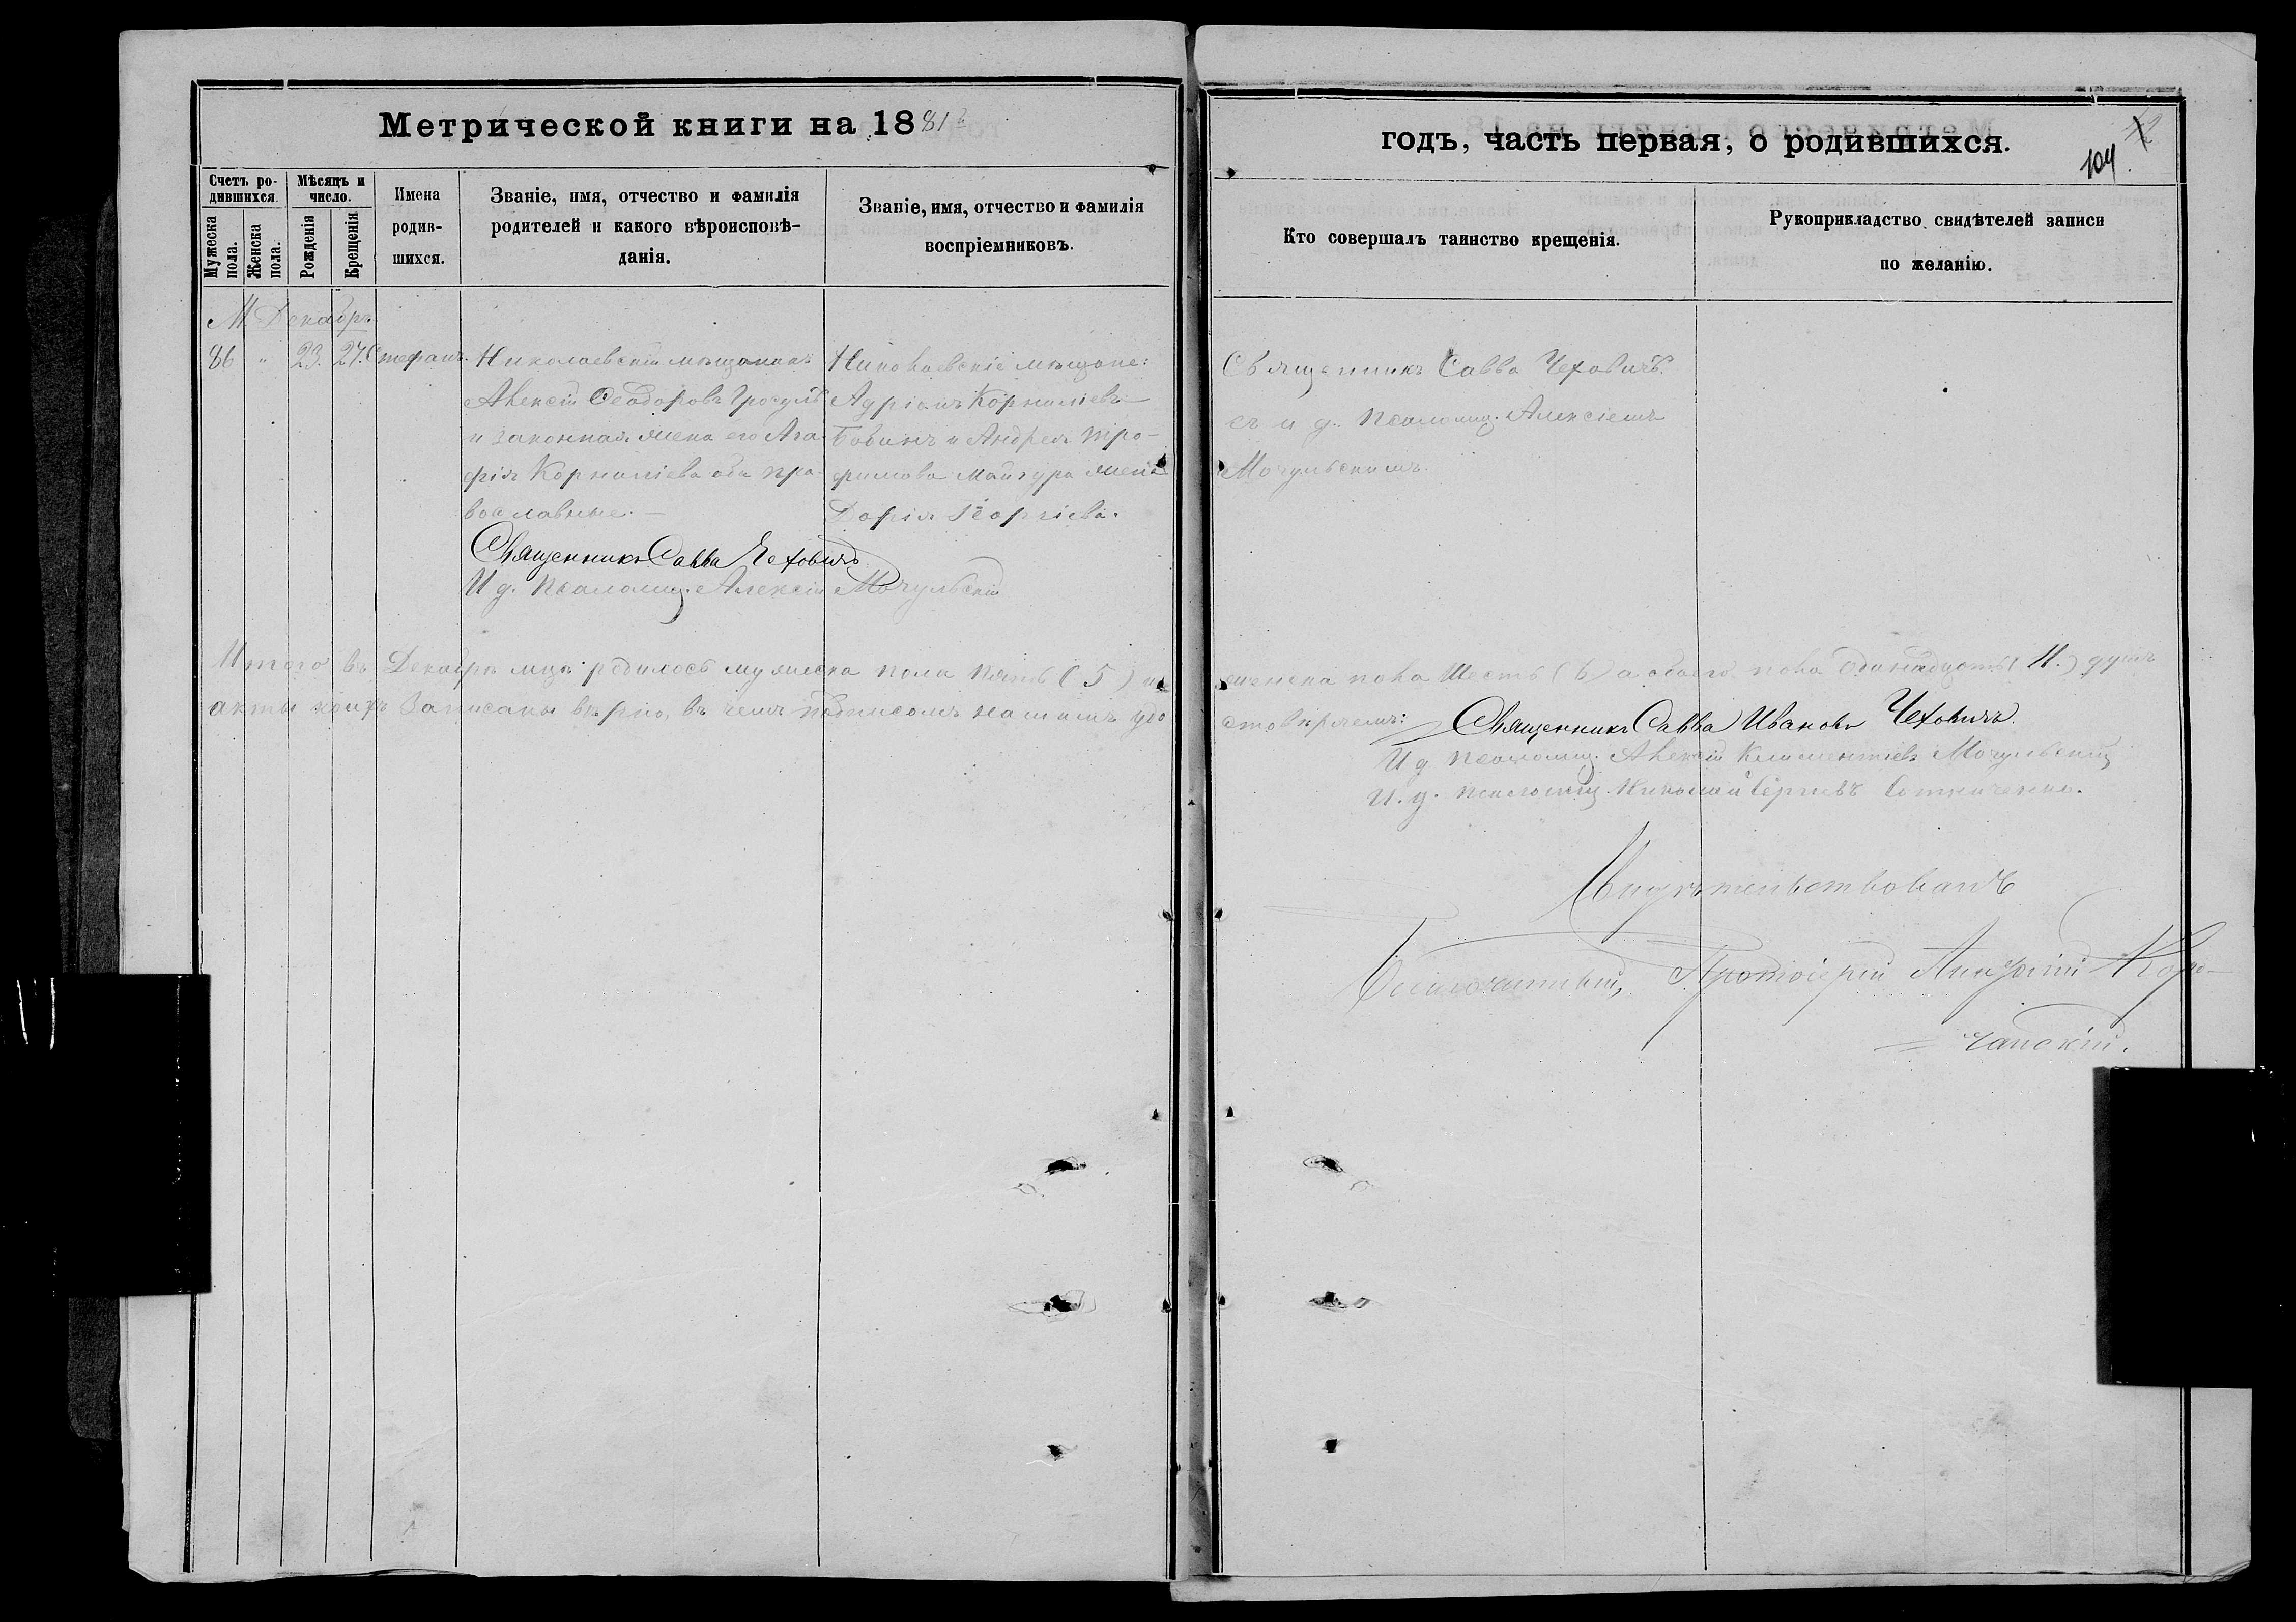 Метрической книги на 1881й
годъ, часть первая, о родившихся.
104.
Счетъ ро-
дившихся.
Мужеска пола.
Женска пола.
Мѣсяцъ и
число.
Рожденія
Крещенія.
Имена
родив-
шихся.
Званіе, имя, отчество и фамилія
родителей и какого вѣроисповѣ-
данія.
Званіе, имя, отчество и фамилія
воспріемниковъ.
Кто совершалъ таинство крещенія.
Рукоприкладство свидѣтелей записи
по желанію.
М. Декабрь
86 " 23. 27. Стефанъ.
Николаевскій мѣщанинъ
Алексій Ѳеодоровъ
и законная жена его Ага-
фія Корниліева оба пра-
вославные. —
Николаевскіе мѣщане:
Адріанъ Корниліевъ
и Андрея Тро-
фимова жена
Дарія Георгіева.
Священникъ Савва Чеховичъ.
съ и д. псаломщ. Алексіемъ
Мочульскимъ.
Священникъ Савва Чеховичъ
И д. псаломщ. Алексій Мочульскій
Итого въ Декабрѣ мцѣ родилось мужеска пола пять (5) и женска пола шесть (6) а обоего пола одинадцать (11.) душъ
акты коихъ записаны вѣрно, въ чемъ подписомъ нашимъ удостовѣряемъ: Священникъ Савва Ивановъ Чеховичъ.
И д псаломщ. Алексій Климентіевъ Мочульскій
И. д. псаломщ. Николай Сергіевъ
Свидѣтельствовалъ
Благочинный, Протоіерей
чанскій.